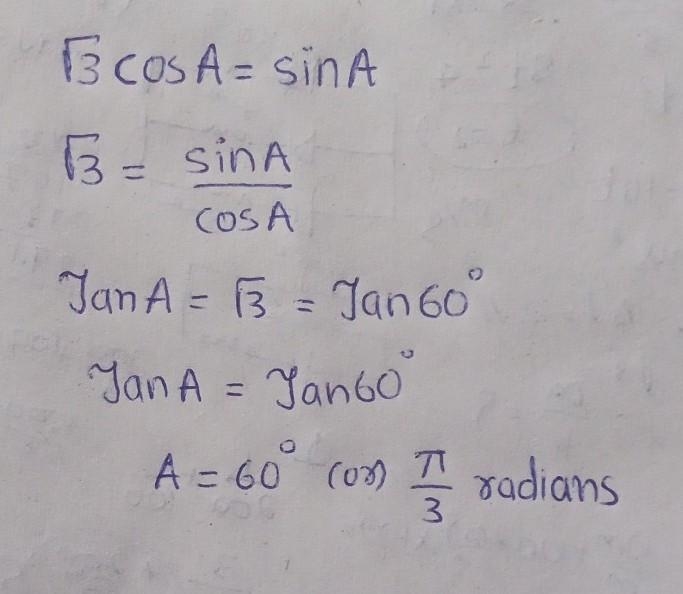 √3 cosA = sinA
√3 = sinA / cosA
TanA = √3 = Tan60°
TanA = Tan60°
A = 60° (or) π/3 radians